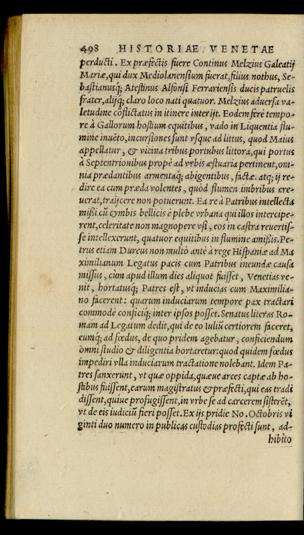 498 HISTORIAE VENETAE
perducti. Ex præfectis fuere Continus Melzius Galeatij
Mariæ, qui dux Mediolanensium fuerat, filius nothus, Se-
bastianusq; Atestinus Alfonsi Ferrariensis ducis patruelis
frater, alijq; claro loco nati quatuor. Melzius aduersa va-
letudine cōflictatus in itinere interijt. Eodem ferè tempo-
re à Gallorum hostium equitibus, vado in Liquentia flu-
mine inuēto, incursiones sunt vsque ad littus, quod Maius
appellatur, & vicina tribus portubus littora, qui portus
à Septentrionibus propè ad vrbis æstuaria pertinent, om-
nia prædantibus armentaq; abigentibus, factæ. atq; ij re-
dire ea cum præda volentes, quòd flumen imbribus cre-
uerat, traijcere non potuerunt. Ea re à Patribus intellecta
missi cū cymbis bellicis è plebe vrbana qui illos intercipe-
rent, celeritate non magnopere vsi, eos in castra reuertis-
se intellexerunt, quatuor equitibus in flumine amissis. Pe-
trus etiam Vureus non multò antè à rege Hispaniæ ad Ma
ximilianum Legatus pacis cum Patribus ineundæ causa
missus, cùm apud illum dies aliquot fuisset, Venetias ve-
nit, hortatusq; Patres est, vt inducias cum Maximilia-
no facerent: quarum induciarum tempore pax tractari
commodè conficiq; inter ipsos posset. Senatus literas Ro-
mam ad Legatum dedit, qui de eo Iulij certiorem faceret,
eumq; ad fœdus, de quo pridem agebatur, conficiendum
omni studio & diligentia hortaretur: quod quidem fœdus
impediri vlla induciarum tractatione nolebant. Idem Pa-
tres sanxerunt, vt quæ oppida, quæue arces captæ ab ho-
stibus fuissent, earum magistratus & præfecti, qui eas tradi
dissent, quiue profugissent, in vrbe se ad carcerem sisterēt,
vt de eis iudiciū fieri posset. Ex ijs pridie No. Octobris vi
ginti duo numero in publicas custodias profecti sunt, ad-
hibito